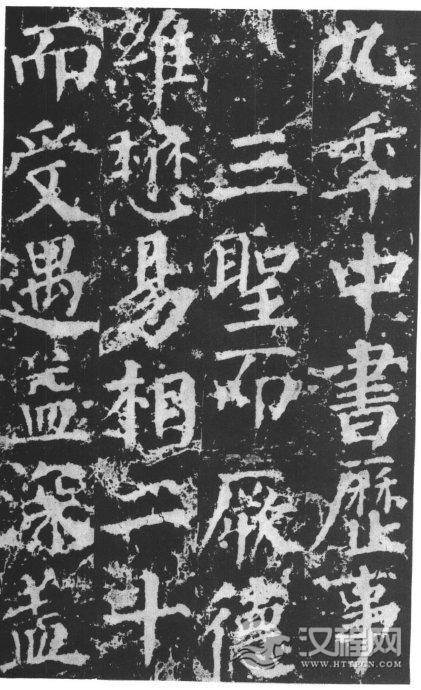 九秊中書歷事
三聖而厥德
維懋易相二斗
而受遇益深盖
汉程网
WWW.HTTPCN.COM